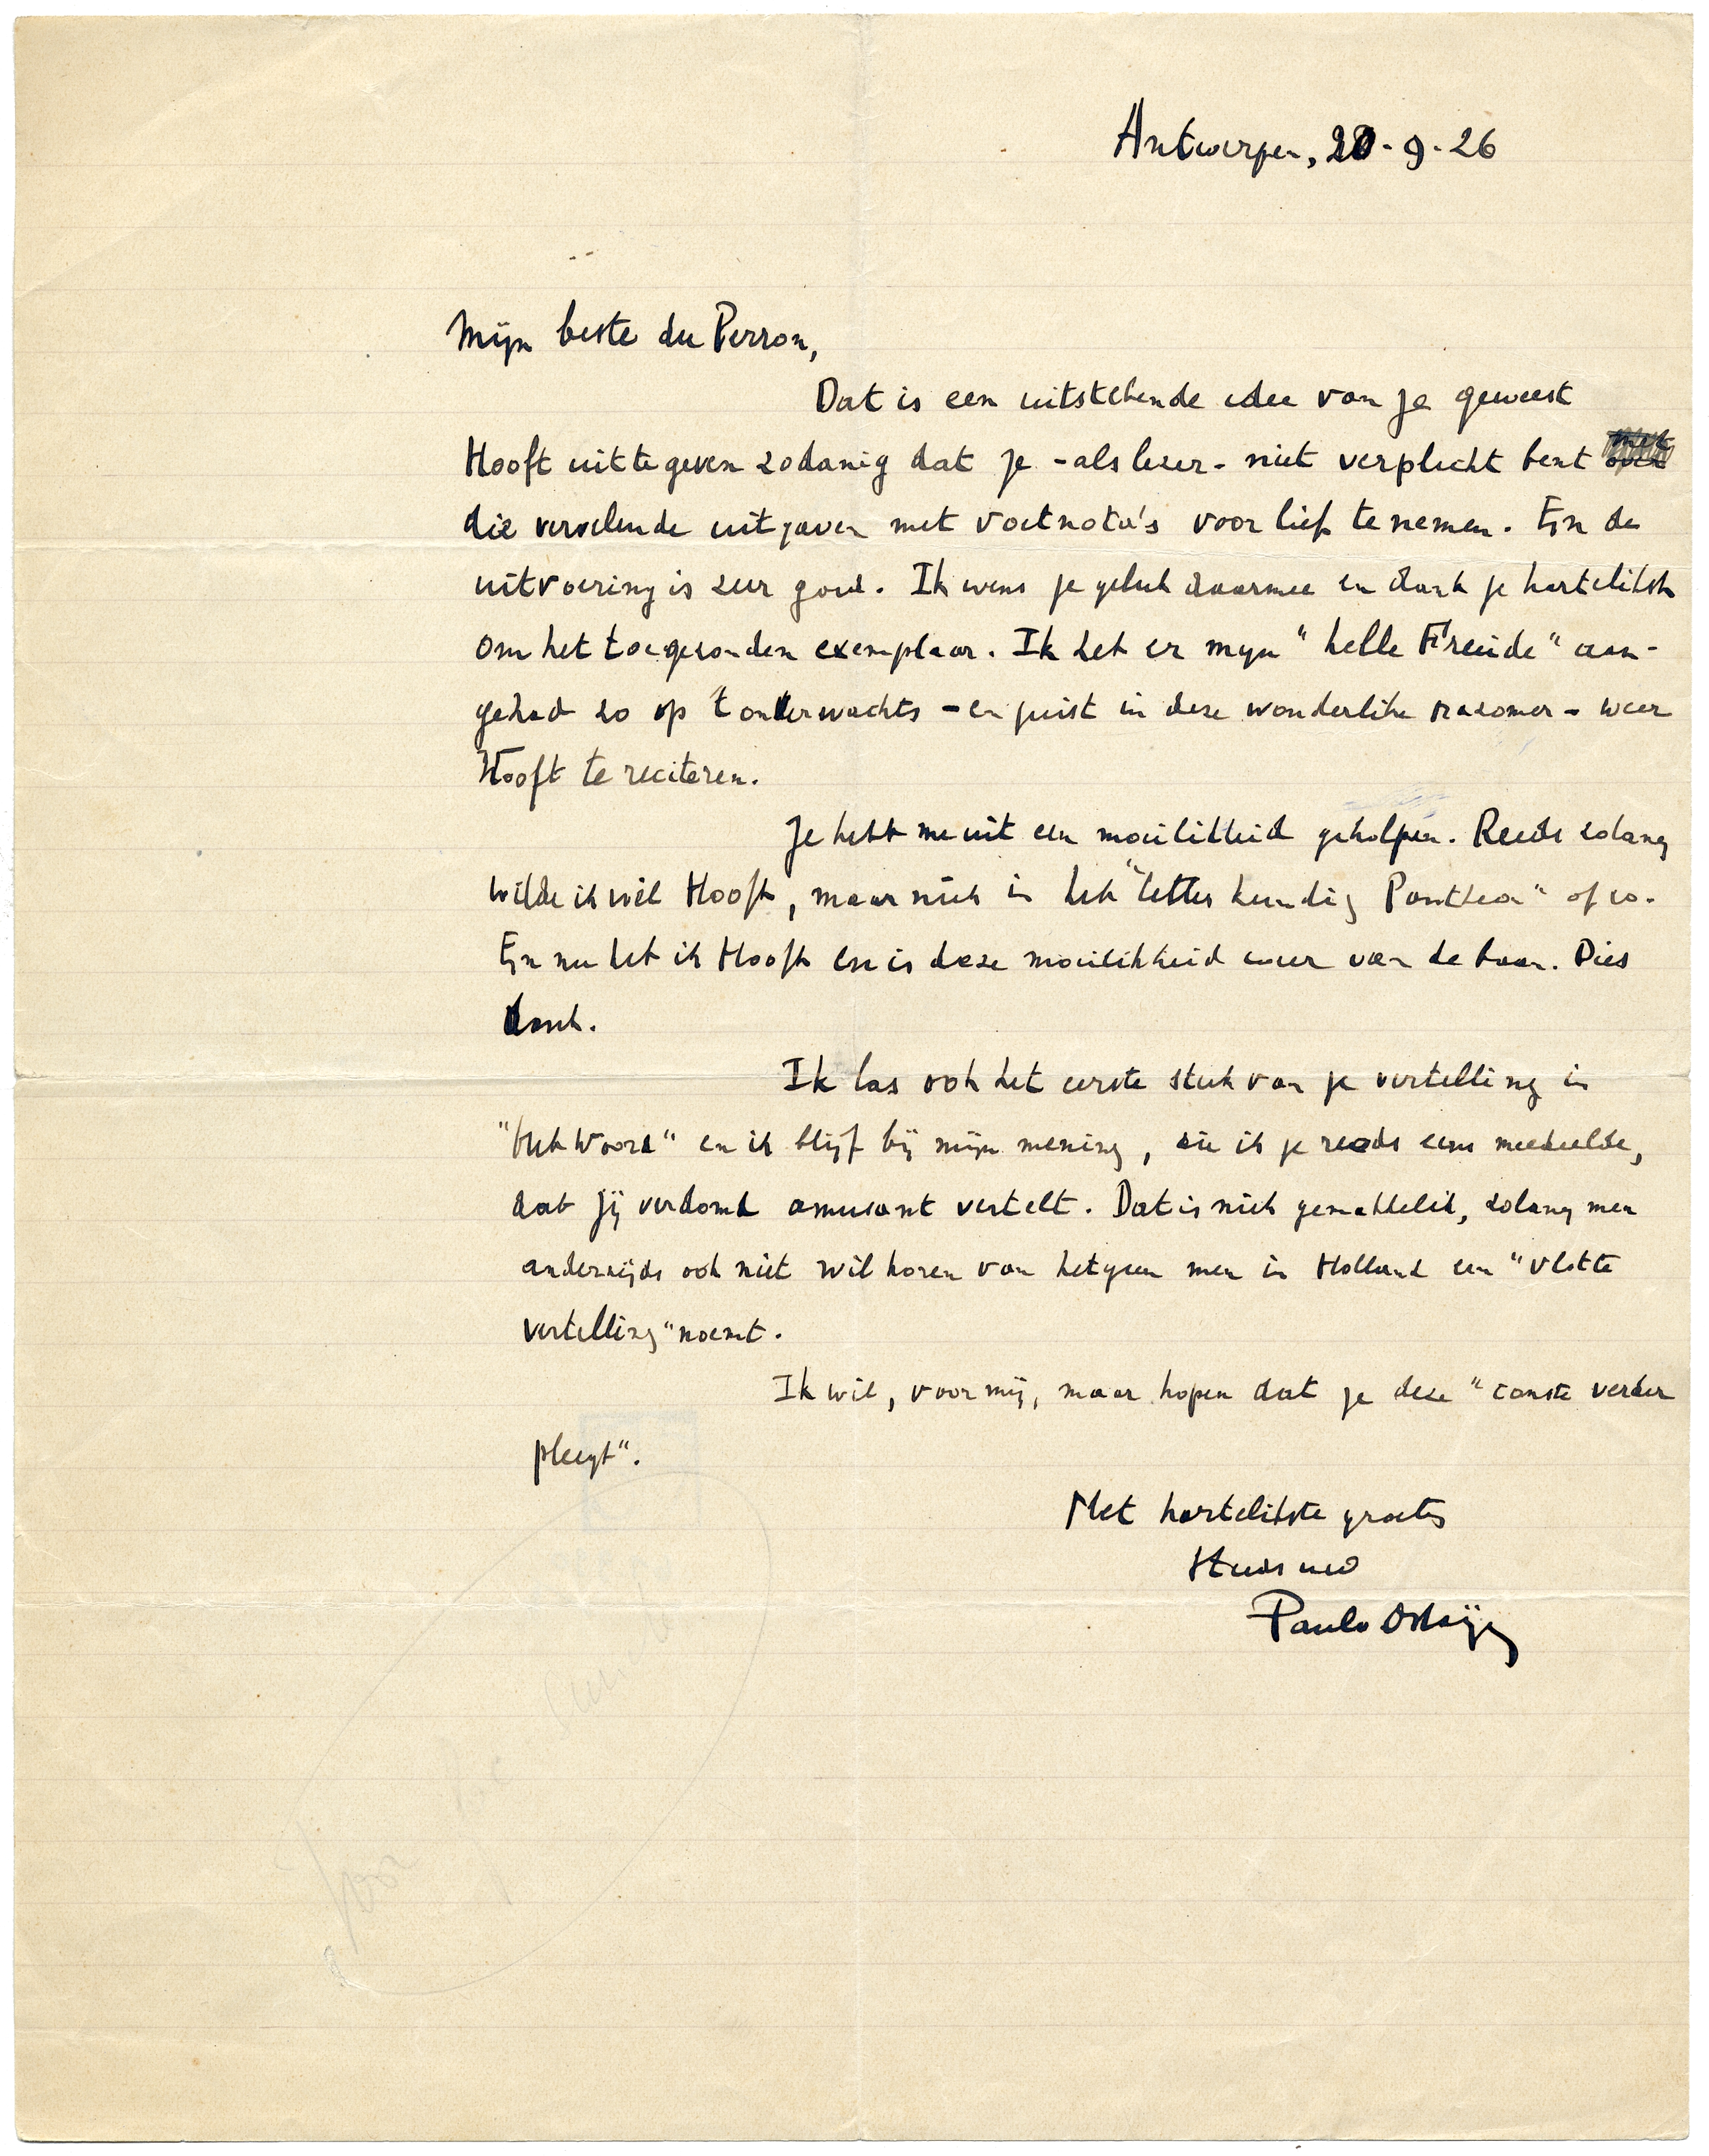 Antwerpen, 20-9-26
Mijn beste du Perron,
Dat is een uitstekende idee van je geweest
Hooft uit te geven zodanig dat je - als lezer - niet verplicht bent
die vervelende uitgaven met voetnota's voor lief te nemen. En de
uitvoering is zeer goed. Ik wens je geluk daarmee en dank je hartelikst
om het toegezonden exemplaar. Ik heb er mijn "helle Freude" aan-
gehad zo op t onverwachts - en juist in deze wonderlike nazomer - weer
Hooft te reciteren.
Je hebt me uit een moeilikheid geholpen. Reeds zolang
wilde ik wel Hooft, maar niet in het "letterkundig Pantheon" of zo.
En nu heb ik Hooft en is deze moeilikheid weer van de baan. Dies
dank.
Ik las ook het eerste stuk van je vertelling in
"Het Woord" en ik blijf bij mijn mening, die ik je reeds eens meedeelde,
dat jij verdomd amusant vertelt. Dat is niet gemakkelik, zolang men
anderzijds ook niet wil horen van hetgeen men in Holland een "vlotte
vertelling" noemt.
Ik wil, voor mij, maar hopen dat je deze "conste verder
pleegt".
Met hartelikste groeten
Steeds uw
Paul v Ostaijen